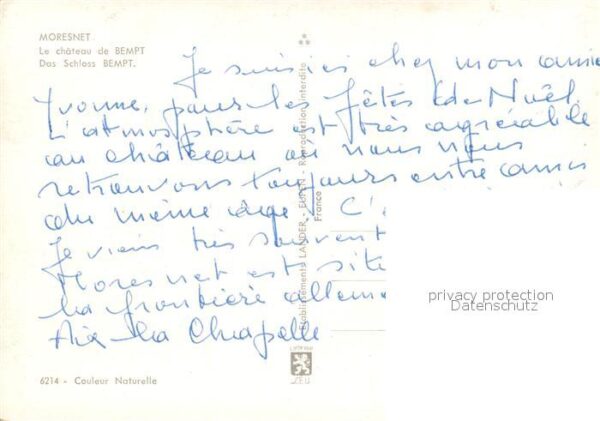 MORESNET
Le château de BEMPT
Das Schloss BEMPT.
Je suis ici chez mon amie
Yvonne, pour les fêtes de Noël.
L'atmosphère est très agréable
au château où nous nous
retrouvons toujours entre amis
du même âge. C'
Je viens très souvent
Moresnet est sit
la frontière allem
Aix la Chapelle
Etablissements LANDER - EUPEN - Reproduction interdite
France
privacy protection
Datenschutz
6214 - Couleur Naturelle